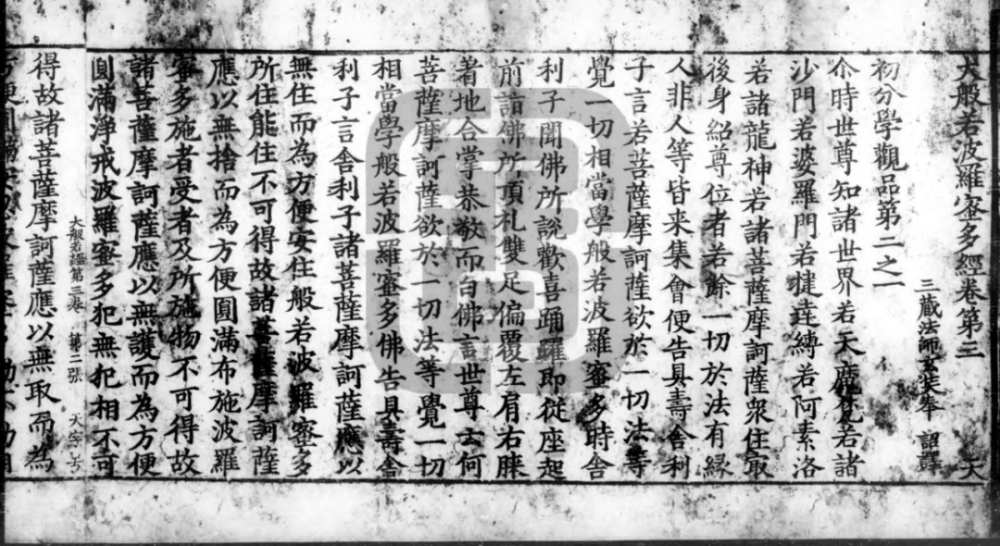 大般若波羅蜜多經卷第三 天
三藏法師玄奘奉 詔譯
初分學觀品第二之一
尒時世尊知諸世界若天魔梵若諸
沙門若婆羅門若揵達縛若阿素洛
若諸龍神若諸菩薩摩訶薩衆住冣
後身紹尊位者若餘一切於法有緣
人非人等皆来集會便告具壽舎利
子言若菩薩摩訶薩欲於一切法等
覺一切相當學般若波羅蜜多時舎
利子聞佛所說歡喜踊躍即從座起
前詣佛所頂礼雙足偏覆左肩右膝
著地合掌恭敬而白佛言世尊云何
菩薩摩訶薩欲於一切法等覺一切
相當學般若波羅蜜多佛告具壽舎
利子言舎利子諸菩薩摩訶薩應以
無住而為方便安住般若波羅蜜多
所住能住不可得故諸菩薩摩訶薩
應以無捨而為方便圓滿布施波羅
蜜多施者受者及所施物不可得故
諸菩薩摩訶薩應以無護而為方便
圓滿淨戒波羅蜜多犯無犯相不可
大般若經第三卷 第二張 天字号
得故諸菩薩摩訶薩應以無取而為